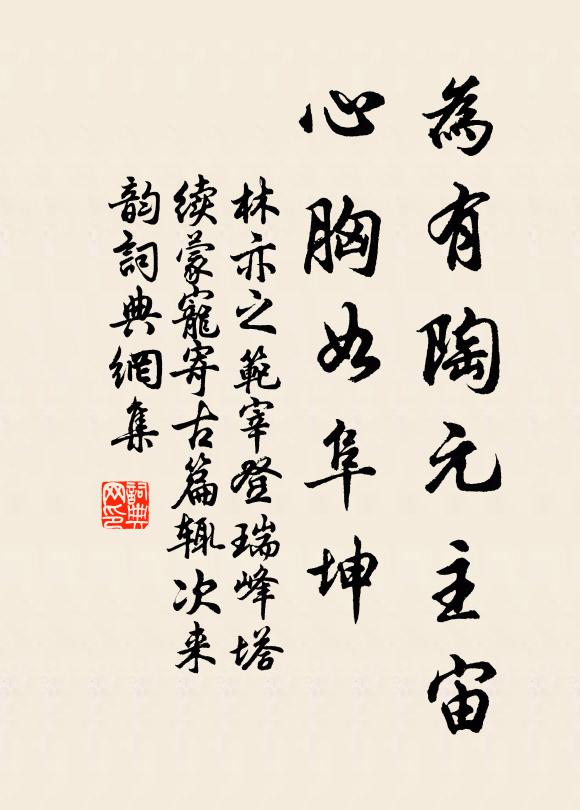 為有陶元主宙
心胸如阜坤
林亦之範宰登瑞峰塔
续蒙寵寄古篇辄次来
韵詞典網集
詞典网印